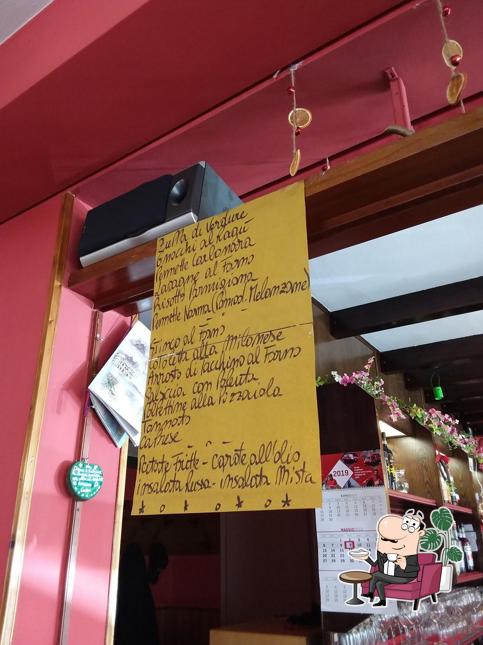 Zuppa di Verdure
Gnocchi al Ragù
Pennette Carbonara
Lasagne al Forno
Risotto Parmigiana
Pennette Norma (Pomod. Melanzane)
Stinco al Forno
Cotoletta alla Milanese
Arrosto di Tacchino al Forno
Salsiccia con Polenta
Polpettine alla Pizzaiola
Tommosto
Caprese
Patate Fritte - Carote all'olio
insalata Russa - insalata Mista
2019
MAGGIO